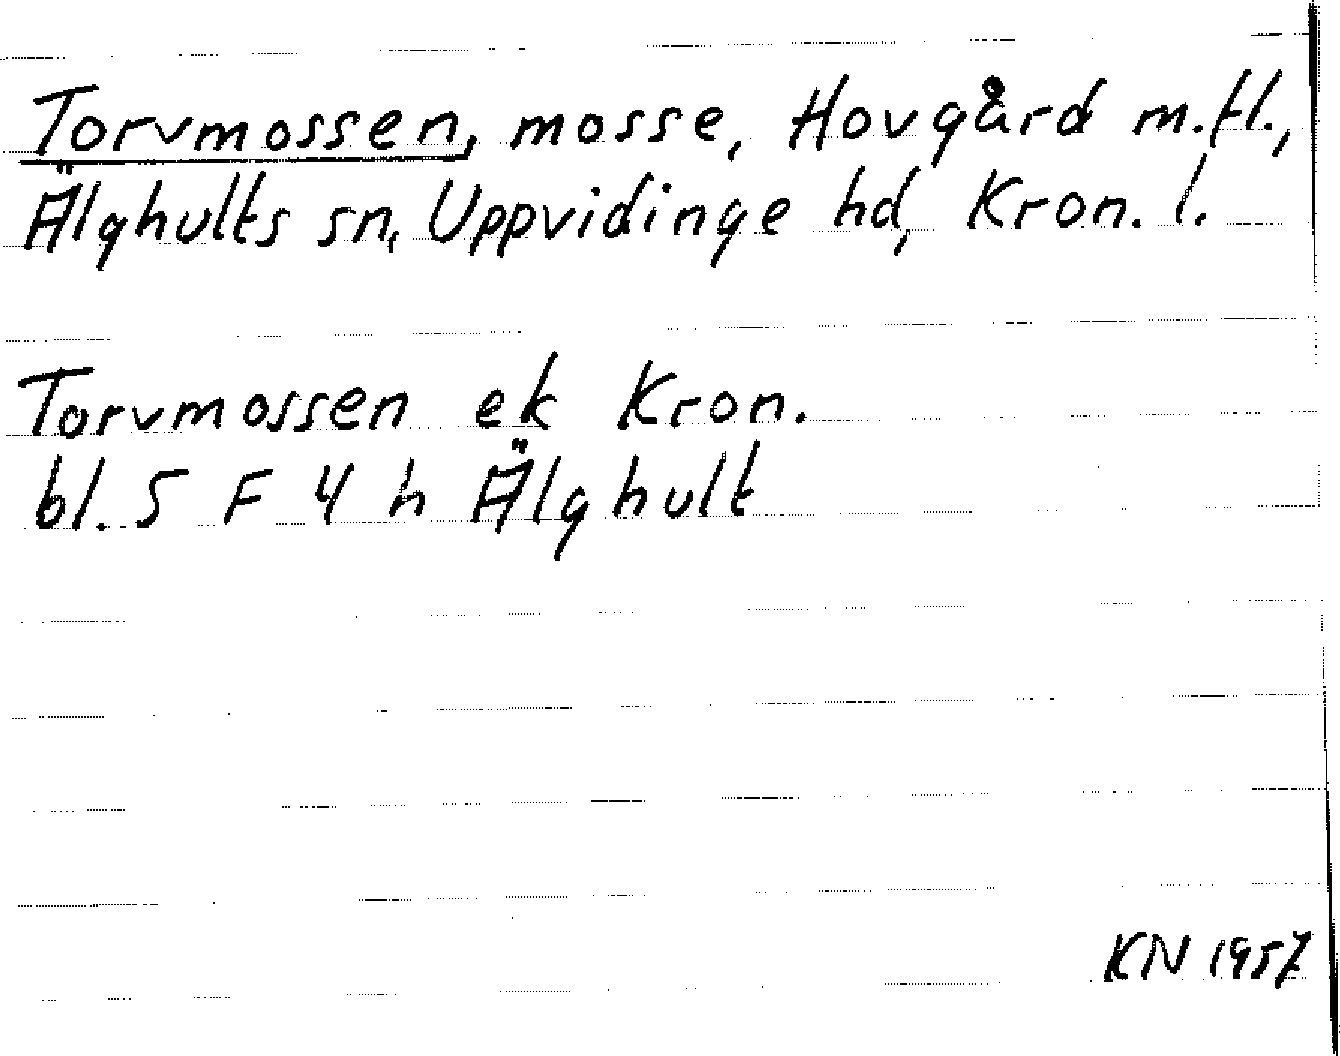 Torvmossen, mosse, Hovgård m.fl.,
Älghults sn, Uppvidinge hd, Kron. l.
Torvmossen ek Kron.
bl. 5 F 4 h Älghult
KN 1957